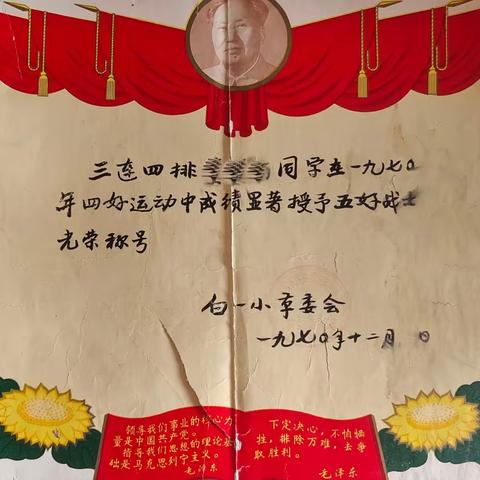 三连四排同学在一九七〇
年四好运动中成绩显著授予五好战士
光荣称号
白一小革委会
一九七〇年十二月 日
领导我们事业的核心力
量是中国共产党。
指导我们思想的理论基
础是马克思列宁主义。
毛泽东
下定决心，不怕牺
牲，排除万难，去争
取胜利。
毛泽东